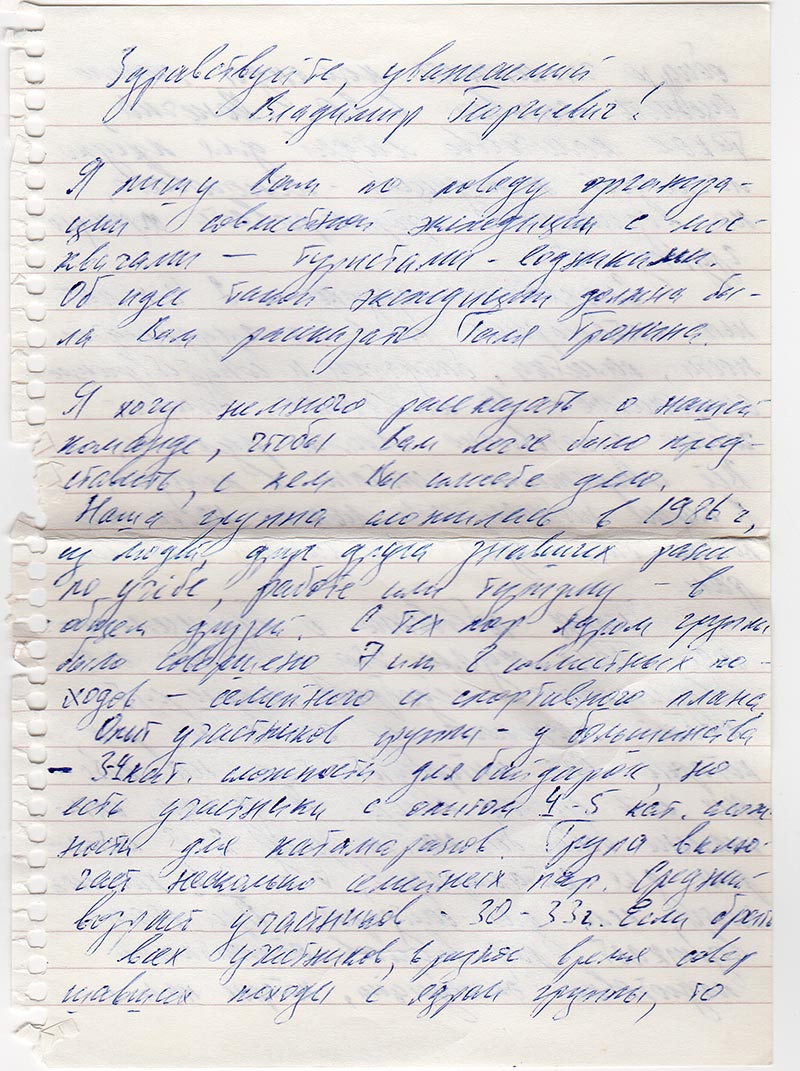 Здравствуйте, уважаемый
Владимир Георгиевич!
Я пишу Вам по поводу организа-
ции совместной экспедиции с мос-
квичами — туристами-водниками.
Об идее такой экспедиции должна бы-
ла Вам рассказать Галя Пронина.
Я хочу немного рассказать о нашей
команде, чтобы Вам легче было пред-
ставить, с кем Вы имеете дело.
Наша группа сложилась в 1986 г,
из людей, друг друга знавших ранее
по учёбе, работе или туризму – в
общем друзей. С тех пор ядром группы
было совершено 7 или 8 совместных по-
ходов – семейного и спортивного плана.
Опыт участников группы – у большинства
- 3-4 кат. сложности для байдарок, но
есть участники с опытом 4-5 кат. слож-
ности для катамаранов. Група вклю-
чает несколько семейных пар. Средний
возраст участников - 30-33 г. Если брать
всех участников, в разное время совер
шавших походы с ядром группы, то